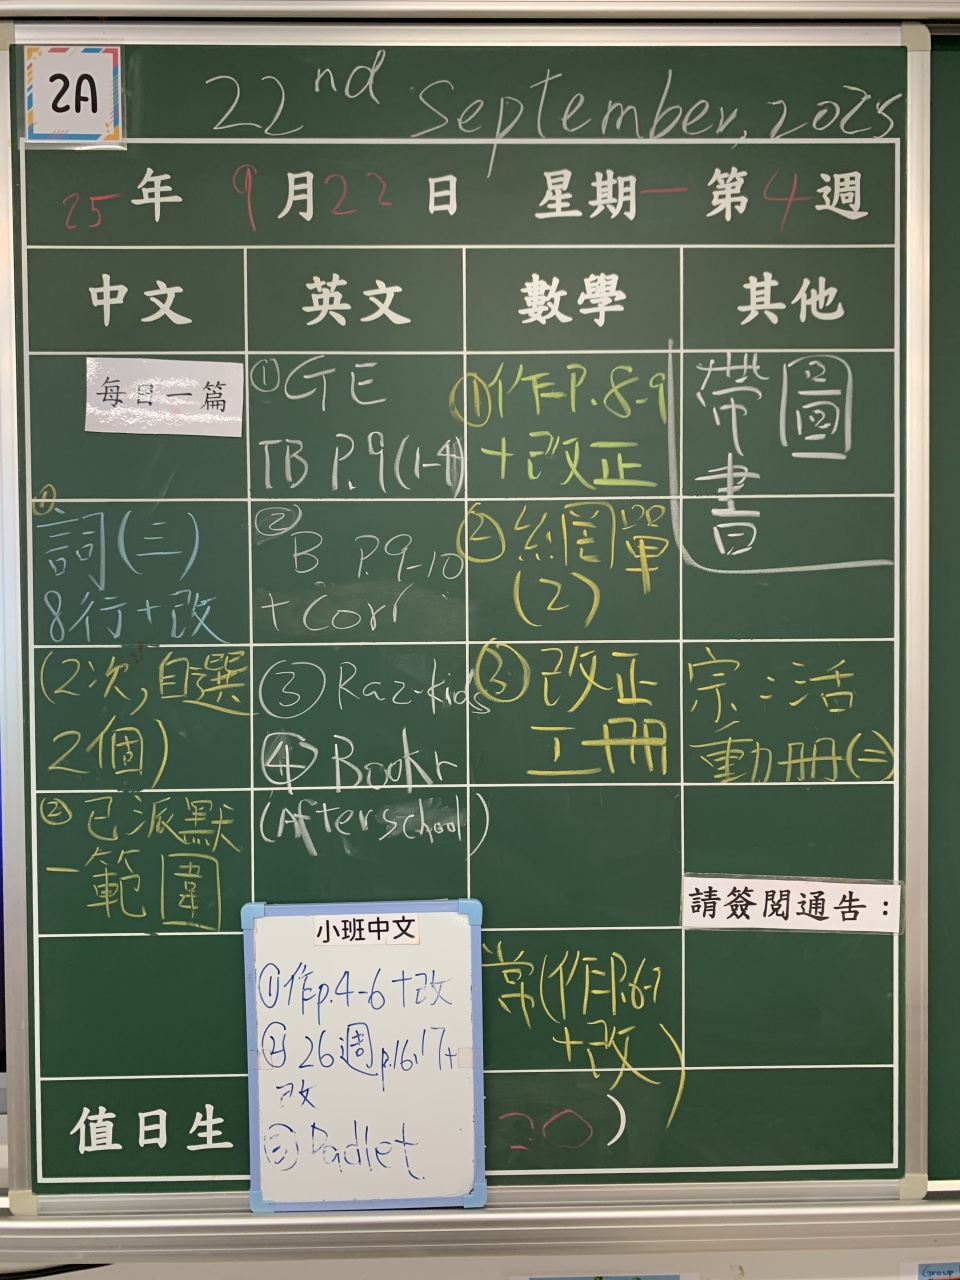 2A
22nd September, 2025
25年 9月22日 星期一 第4週
中文 英文 數學 其他
每日一篇
①詞(三)
8行+改
(2次,自選
2個)
②已派默
一範圍
①GE
TB P.9(1-4)
②B P.9-10
+ Corr
③Raz-kids
④Bookr
(After school)
①作P.8-9
+改正
②網單
(2)
③改正
工冊
帶圖
書
宗:活
動冊(三)
請簽閱通告:
常(作P.6-7
+改)
小班中文
①作p.4-6+改
②26週p.16,17+
改
③Padlet
值日生
20 )
Group